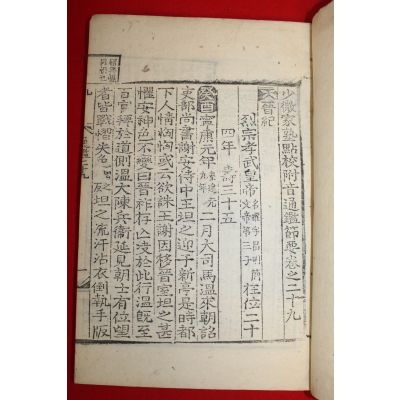 少微家塾點校附音通鑑節要卷之二十九
晉紀
烈宗孝武皇帝名曜字昌明簡文帝第三子在位二十
四年 壽三十五
癸酉寧康元年 二月大司馬溫來朝詔
吏部尚書謝安侍中王坦之迎于新亭是時都
下人情恟恟或云欲誅王謝因移晉室坦之甚
懼安神色不變曰晉祚存亡決於此行溫旣至
百官拜於道側溫大陳兵衛延見朝士有位望
者皆戰慴失色 坦之流汗沾衣倒執手版